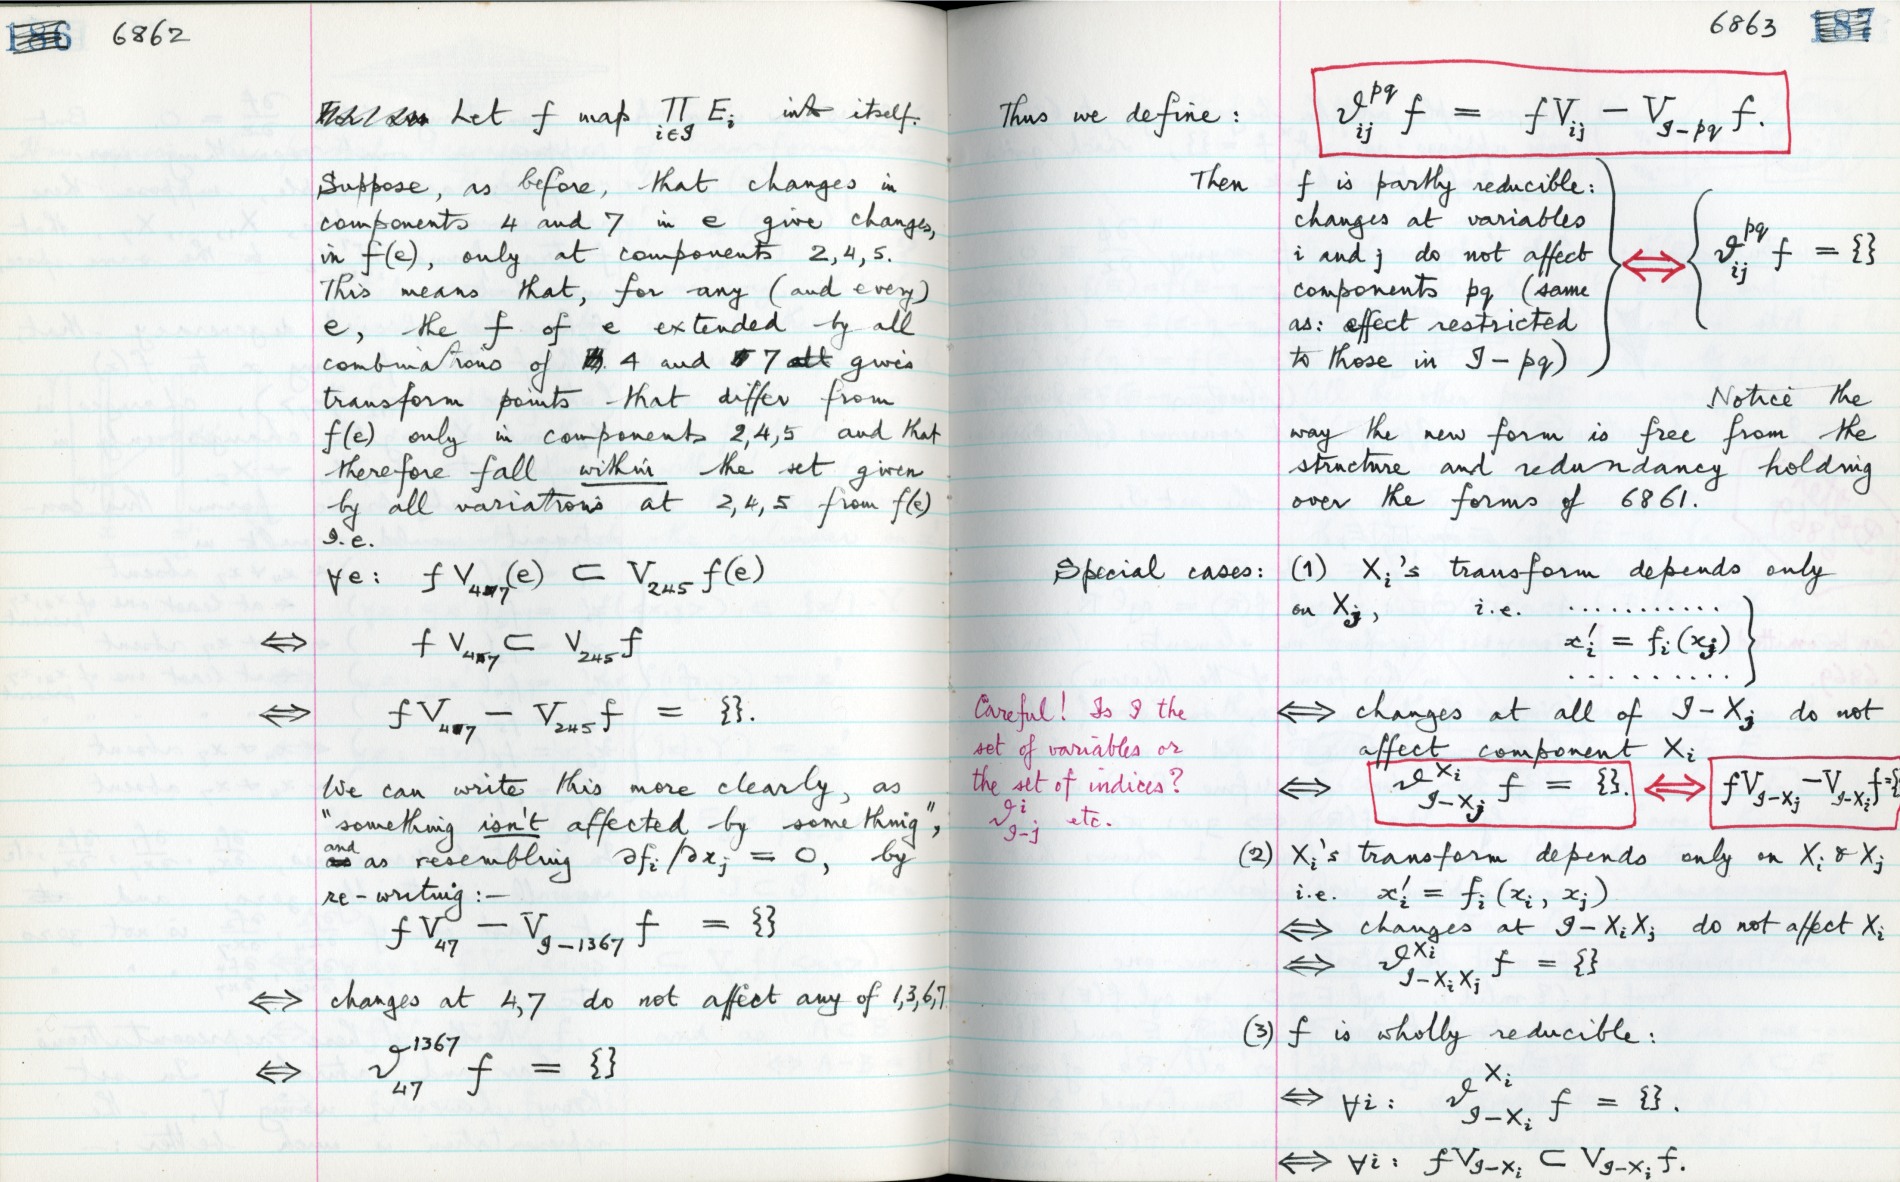 186 6862
Let f map Π_{i∈𝒥} E_i into itself.
Suppose, as before, that changes in
components 4 and 7 in e give changes,
in f(e), only at components 2,4,5.
This means that, for any (and every)
e, the f of e extended by all
combinations of 4 and 7 gives
transform points that differ from
f(e) only in components 2,4,5 and that
therefore fall within the set given
by all variations at 2,4,5 from f(e)
I.e.
∀e: f V_{47}(e) ⊂ V_{245} f(e)
⇔ f V_{47} ⊂ V_{245} f
⇔ f V_{47} − V_{245} f = {}.
We can write this more clearly, as
"something isn't affected by something",
and as resembling ∂f_i/∂x_j = 0, by
re-writing:—
f V_{47} − V_{𝒥−1367} f = {}
⇔ changes at 4,7 do not affect any of 1,3,6,7
⇔ ϑ_{47}^{1367} f = {}
6863 187
Thus we define: ϑ_{ij}^{pq} f = f V_{ij} − V_{𝒥−pq} f.
Then f is partly reducible:
changes at variables
i and j do not affect
components pq (same
as: effect restricted
to those in 𝒥−pq)
⇔ ϑ_{ij}^{pq} f = {}
Notice the
way the new form is free from the
structure and redundancy holding
over the forms of 6861.
Special cases: (1) X_i's transform depends only
on X_j, i.e. ...........
x_i' = f_i(x_j)
.........
⇔ changes at all of 𝒥−X_j do not
affect component X_i
⇔ ϑ_{𝒥−X_j}^{X_i} f = {}. ⇔ f V_{𝒥−X_j} − V_{𝒥−X_i} f = {
Careful! Is 𝒥 the
set of variables or
the set of indices?
ϑ_{𝒥−j}^{i} etc.
(2) X_i's transform depends only on X_i & X_j
i.e. x_i' = f_i(x_i, x_j)
⇔ changes at 𝒥−X_iX_j do not affect X_i
⇔ ϑ_{𝒥−X_iX_j}^{X_i} f = {}
(3) f is wholly reducible:
⇔ ∀i: ϑ_{𝒥−X_i}^{X_i} f = {}.
⇔ ∀i: f V_{𝒥−X_i} ⊂ V_{𝒥−X_i} f.